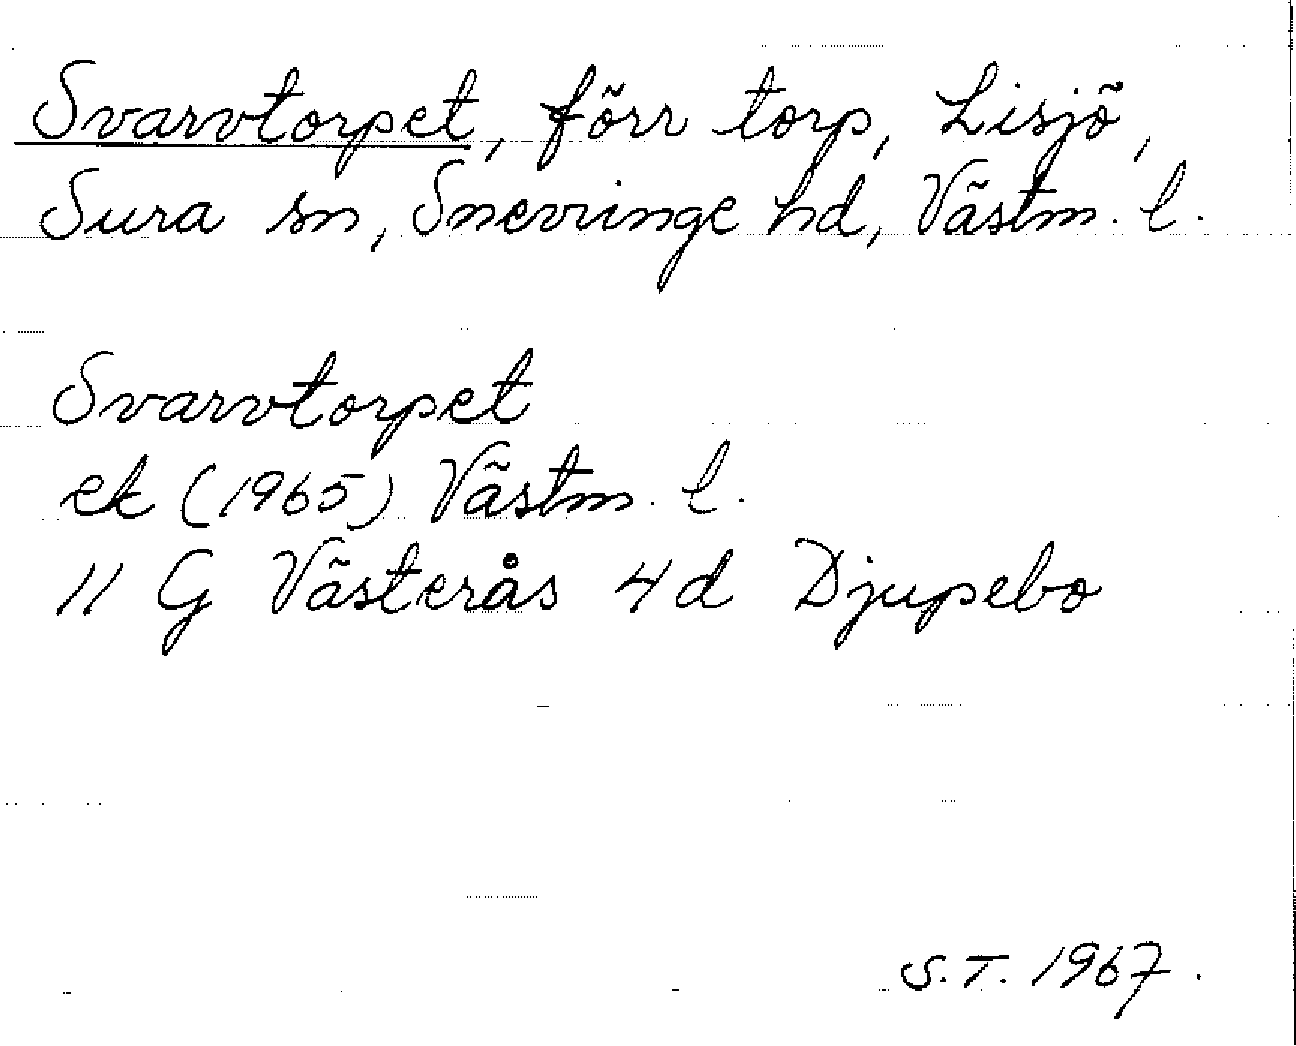 Svarvtorpet, förr torp, Lisjö,
Sura sn, Snevringe hd, Västm. l.
Svarvtorpet
ek (1965) Västm. l.
11 G Västerås 4d Djupebo
S.T. 1967.